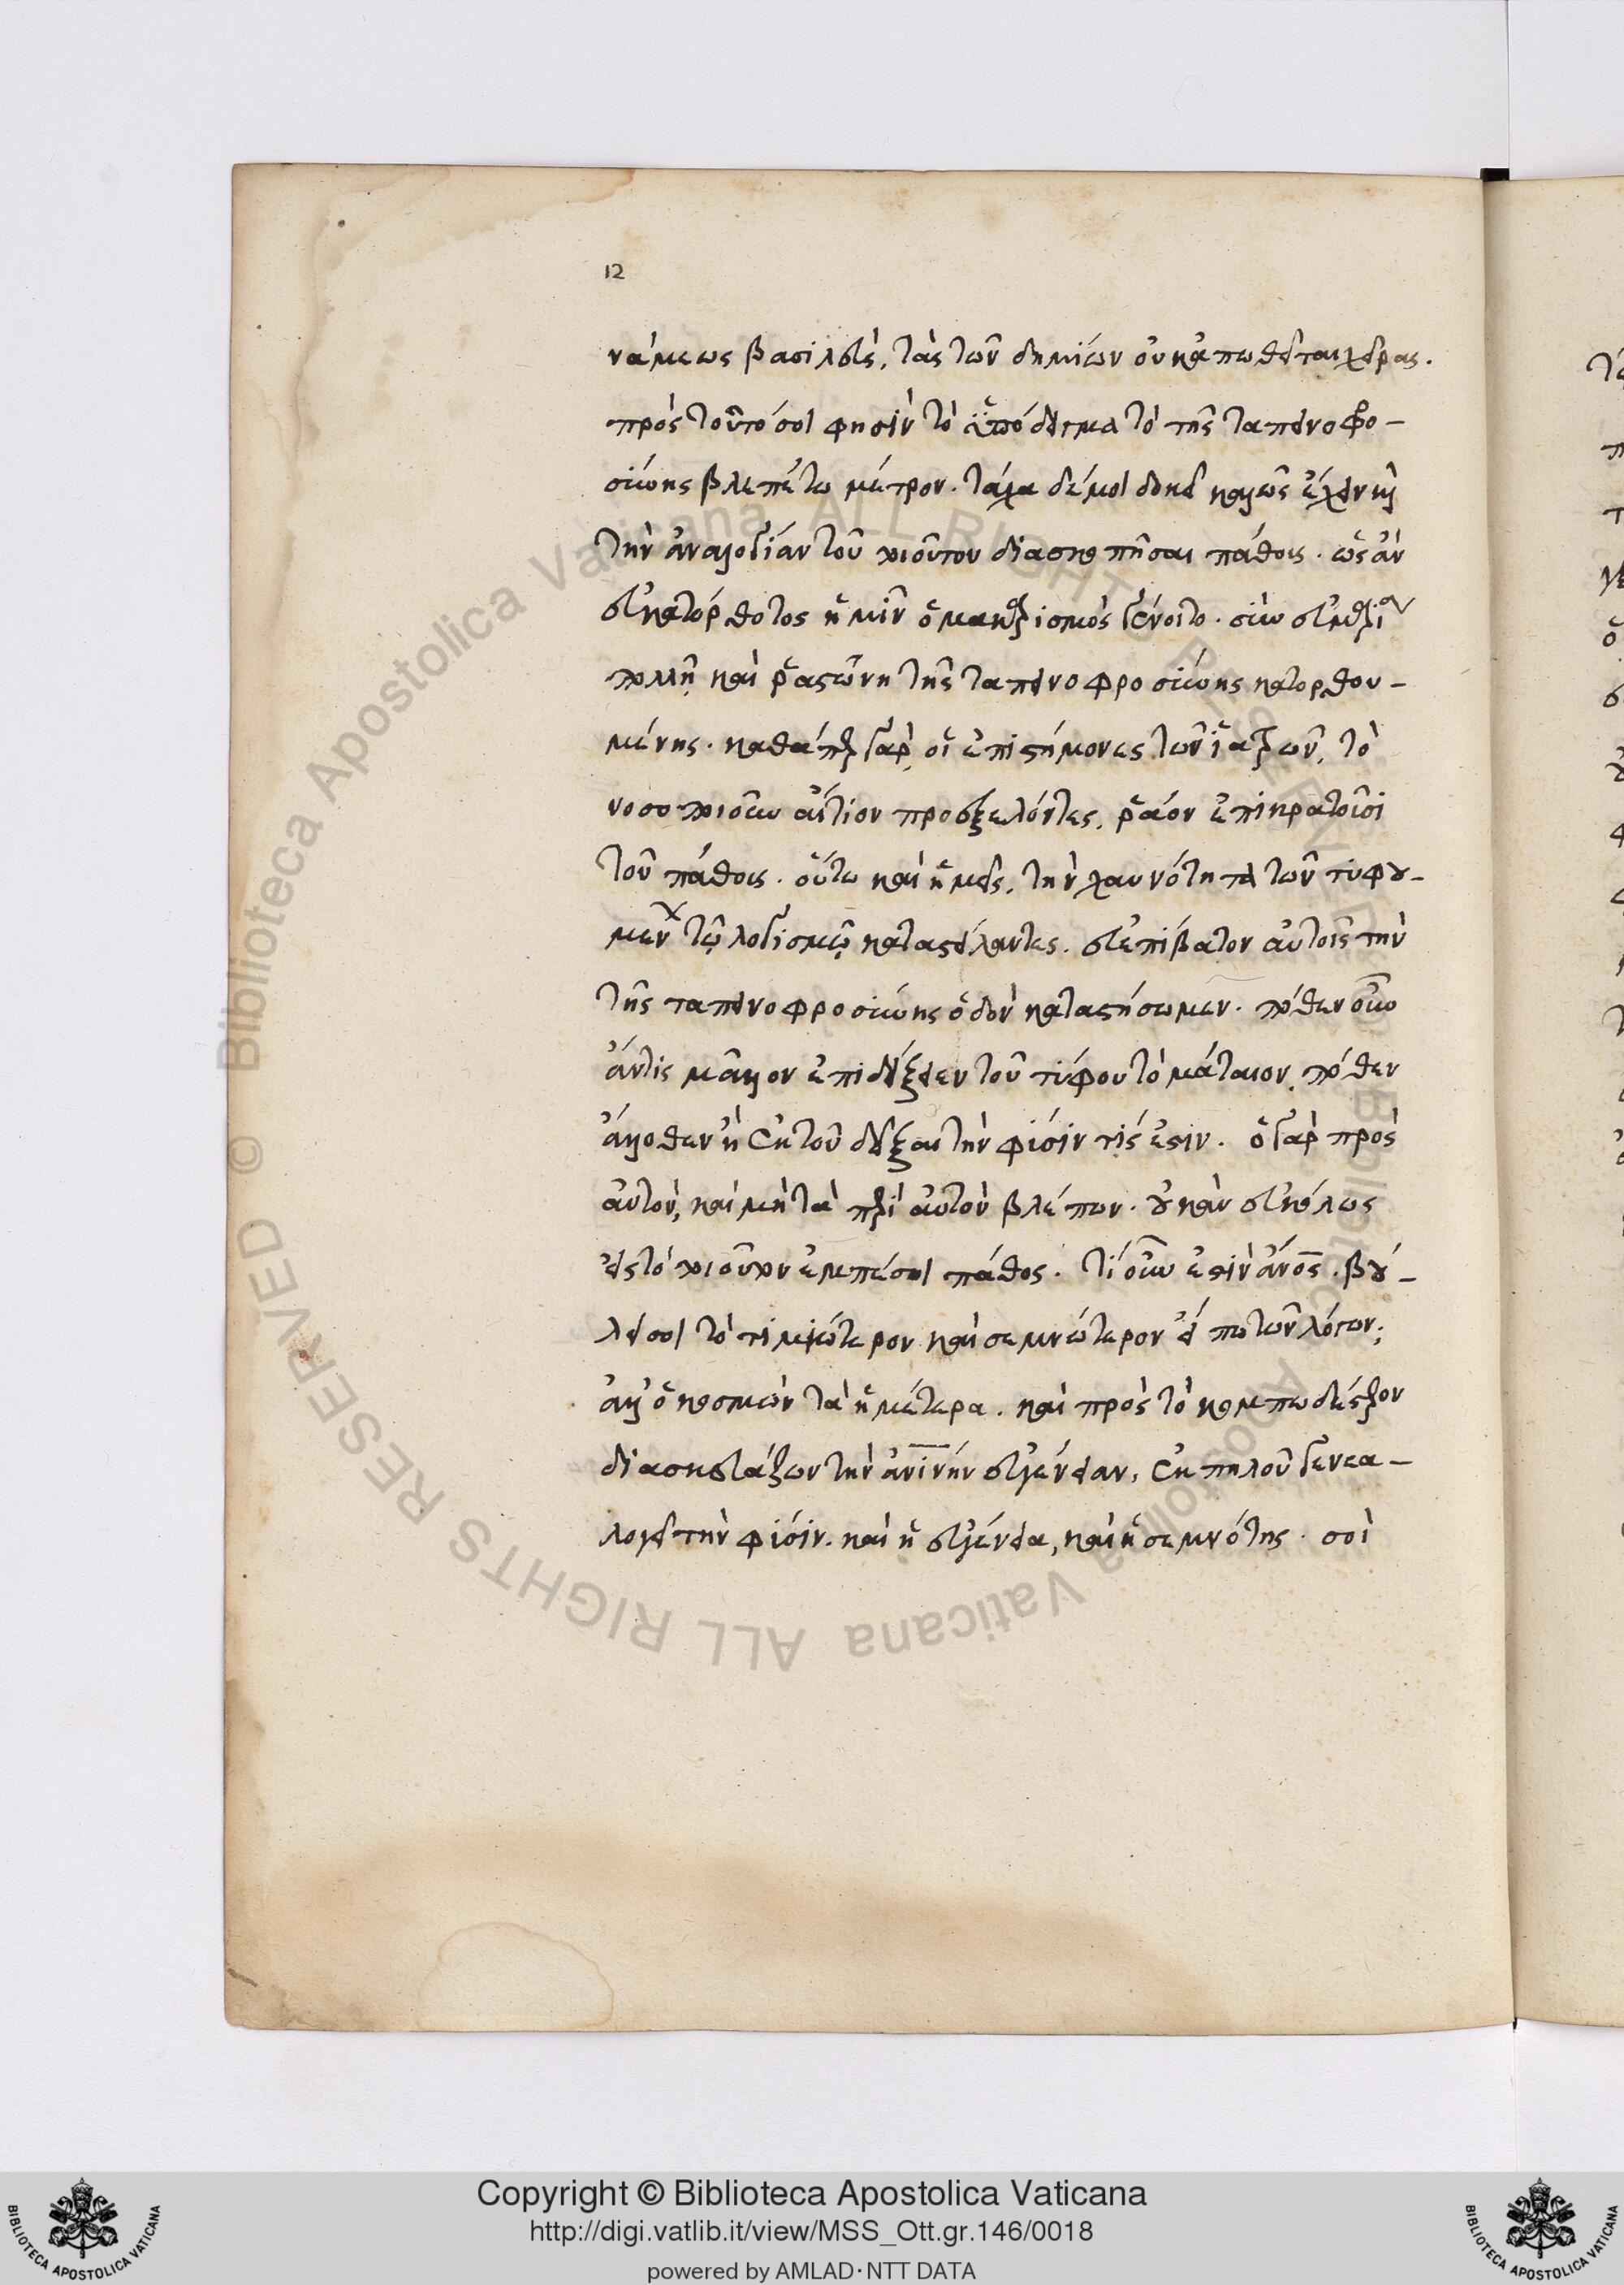 12
νάμεως βασιλεὺς, τὰς τῶν δημίων οὐκ ἀπωθεῖται χεῖρας.
πρὸς τοῦτό σοι φησὶν τὸ ὑπόδειγμα τὸ τῆς ταπεινοφρο-
σύνης βλεπέτω μέτρον. τάχα δέ μοι δοκεῖ καλῶς ἔχειν καὶ
τὴν ἀναλογίαν τοῦ τοιούτου διασκοπῆσαι πάθους. ὡς ἂν
εὐκατόρθωτος ἡμῖν ὁ μακαρισμὸς γένοιτο. σὺν εὐμαρίᾳ
πολλῇ καὶ ῥαστώνῃ τῆς ταπεινοφροσύνης κατορθου-
μένης. καθάπερ γὰρ, οἱ ἐπιστήμονες τῶν ἰατρῶν, τὸ
νοσοποιοῦν αἴτιον προεξελόντες, ῥᾷον ἐπικρατοῦσι
τοῦ πάθους. οὕτω καὶ ἡμεῖς, τὴν χαυνότητα τῶν τυφου-
μένων τῷ λογισμῷ καταστείλαντες. εὐεπίβατον αὐτοῖς τὴν
τῆς ταπεινοφροσύνης ὁδὸν καταστήσωμεν. πόθεν οὖν
ἄν τις μᾶλλον ἐπιδείξειεν τοῦ τύφου τὸ μάταιον, πόθεν
ἄλλοθεν ἢ ἐκ τοῦ δεῖξαι τὴν φύσιν τίς ἐστιν. ὁ γὰρ πρὸς
αὐτὸν, καὶ μὴ τὰ περὶ αὐτὸν βλέπων. οὐκ ἂν εὐκόλως
εἰς τὸ τοιοῦτον ἐμπέσοι πάθος. τί οὖν ἐστὶν ἄνος. βού-
λει σοι τὸ τιμιώτερον καὶ σεμνώτερον εἴπω τῶν λόγων;
ἀλλ' ὁ κοσμῶν τὰ ἡμέτερα. καὶ πρὸς τὸ κομπωδέστερον
διασκευάζων τὴν ἀνίνην εὐγένειαν, ἐκ πηλοῦ γενεα-
λογεῖ τὴν φύσιν. καὶ ἡ εὐγένεια, καὶ ἡ σεμνότης. σοὶ
Copyright © Biblioteca Apostolica Vaticana
http://digi.vatlib.it/view/MSS_Ott.gr.146/0018
powered by AMLAD·NTT DATA